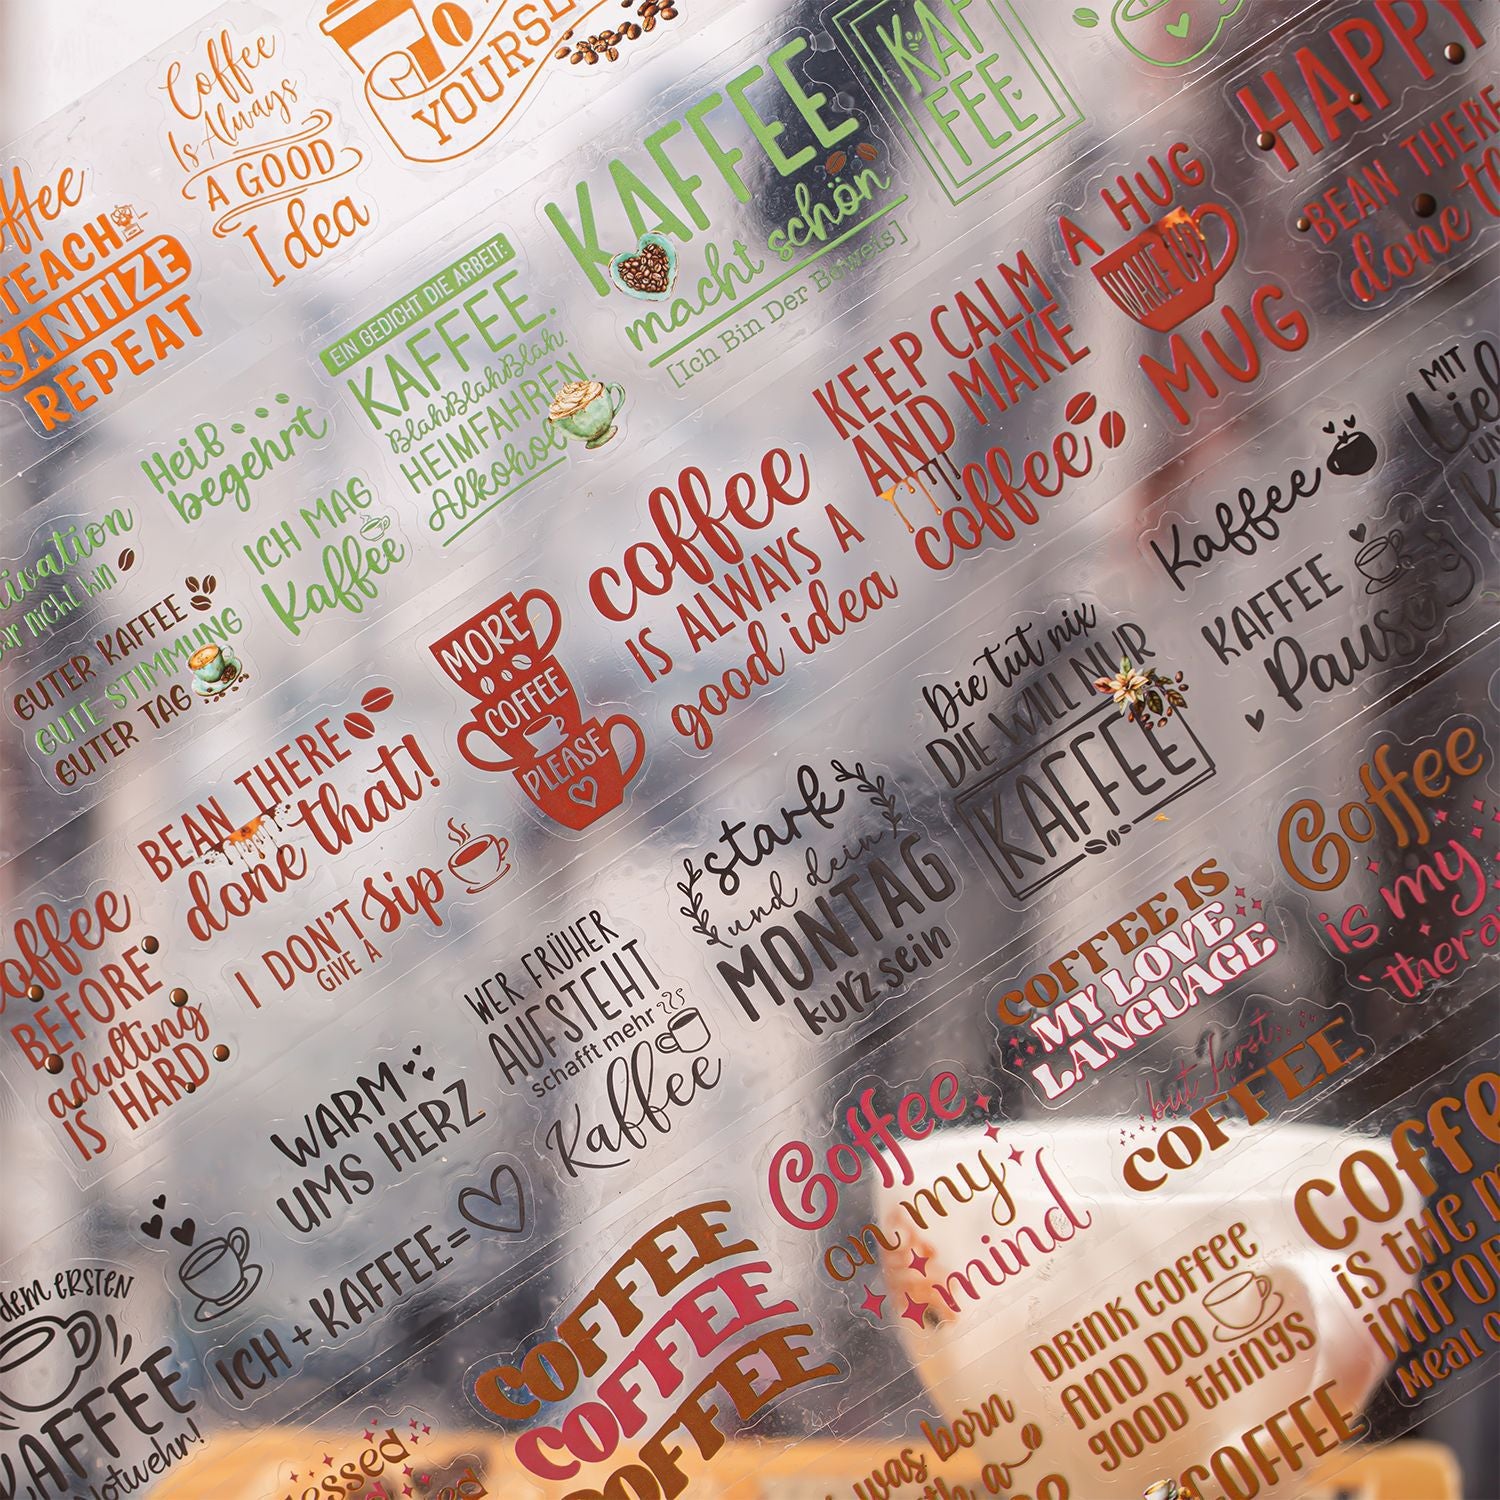 Coffee
TEACH
SANITIZE
REPEAT
Coffee
Is Always
A GOOD
Idea
HEIß
begehrt
ICH MAG
Kaffee
EIN GEDICHT DIE ARBEIT:
KAFFEE.
BlahBlahBlah.
HEIMFAHREN.
Alkohol
KAFFEE
macht schön
[Ich Bin Der Beweis]
KAF
FEE
nicht hin
GUTER KAFFEE
GUTE STIMMUNG
GUTER TAG
BEAN THERE
done that!
I DON'T
GIVE A
Sip
MORE
COFFEE
PLEASE
coffee
IS ALWAYS A
good idea
KEEP CALM
AND MAKE
coffee
A HUG
WAKE UP
MUG
BEAN THERE
done
Coffee
BEFORE
adulting
IS HARD
WARM
UMS HERZ
ICH + KAFFEE =
WER FRÜHER
AUFSTEHT
schafft mehr
Kaffee
stark
und dein
MONTAG
kurz sein
Die tut nix
DIE WILL NUR
KAFFEE
Kaffee
KAFFEE
Pause
MIT
dem ERSTEN
KAFFEE
Notwehr!
COFFEE
COFFEE
COFFEE
Coffee
on my
mind
COFFEE IS
MY LOVE
LANGUAGE
but first,
COFFEE
Coffee
is my
DRINK COFFEE
AND DO
GOOD THINGS
was born
COFFEE
is the